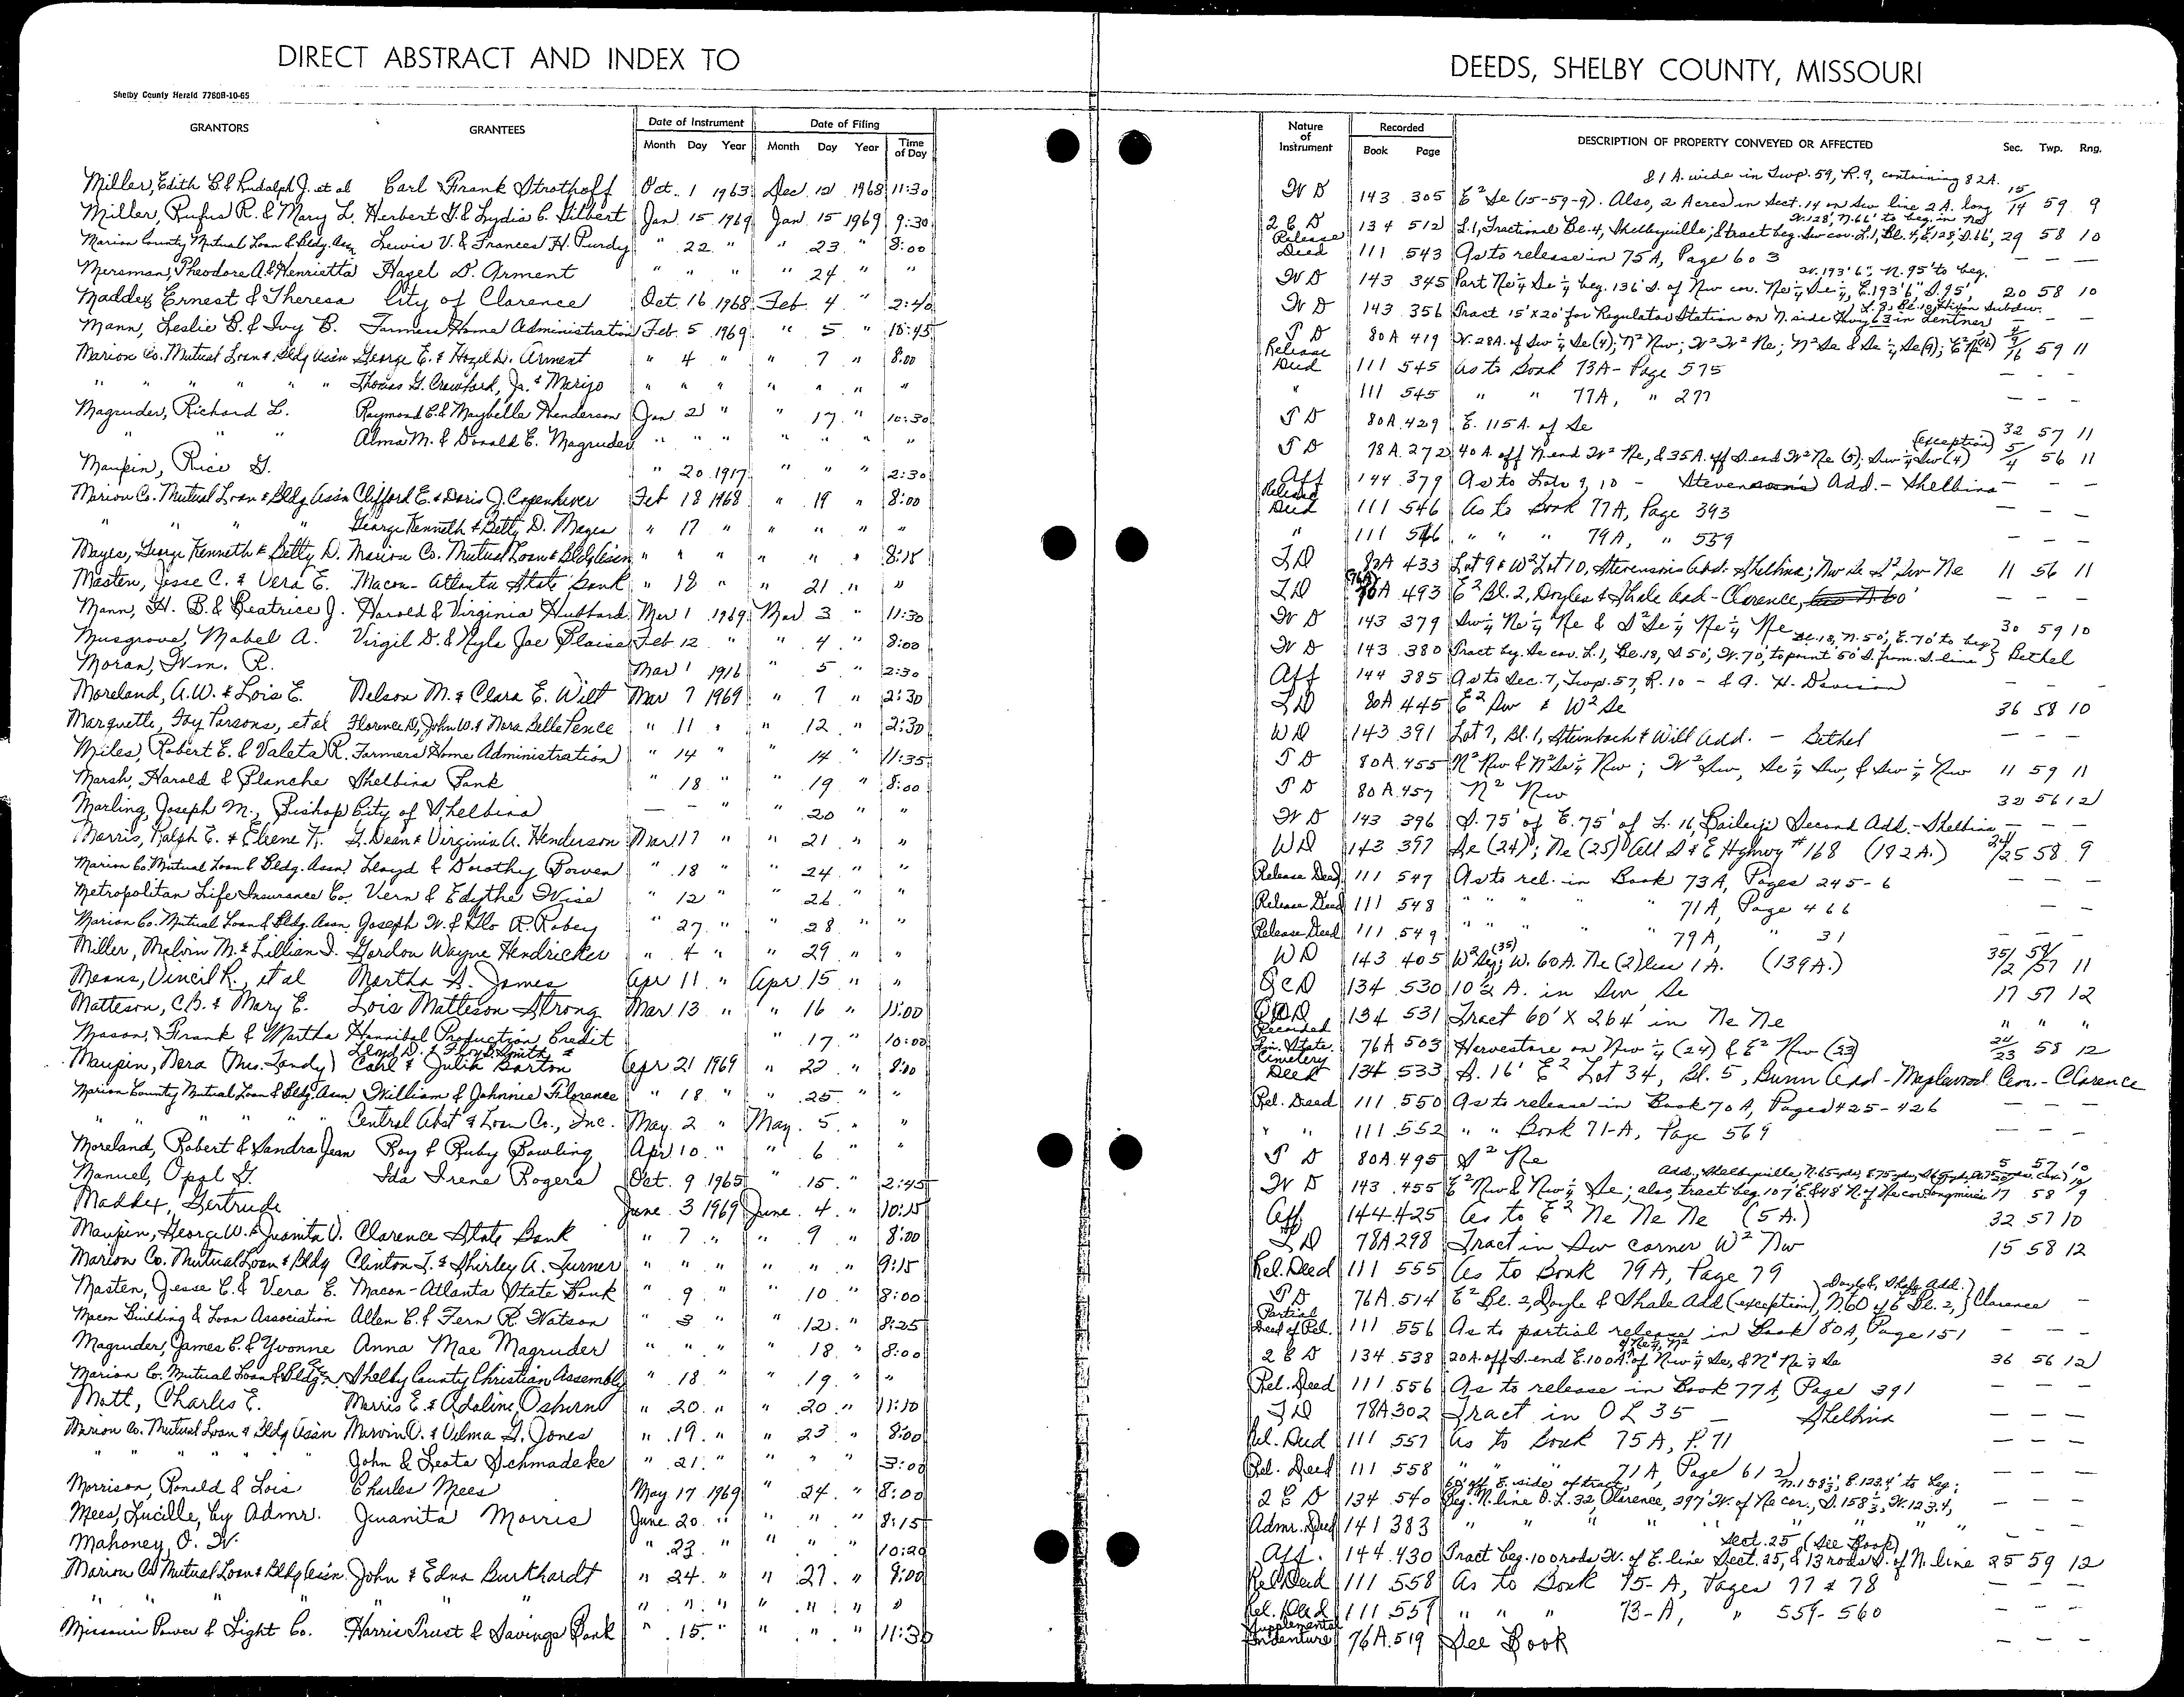 DIRECT ABSTRACT AND INDEX TO
DEEDS, SHELBY COUNTY, MISSOURI
Shelby County Herald 7760B-10-65
GRANTORS GRANTEES Date of Instrument Month Day Year Date of Filing Month Day Year Time of Day
Nature of Instrument Recorded Book Page DESCRIPTION OF PROPERTY CONVEYED OR AFFECTED Sec. Twp. Rng.
Miller, Edith B & Rudolph J. et al Carl Frank Strothoff Oct. 1 1963 Dec. 12 1968 11:30
Miller, Rufus R. & Mary L. Herbert G. & Lydia C. Gilbert Jan 15 1969 Jan 15 1969 9:30
Marion County Mutual Loan & Bldg. Assn Lewis V. & Frances H. Purdy " 22 " " 23 " 8:00
Mersman, Theodore A. & Henrietta Hazel D. Arment " " " " 24 " "
Maddex Ernest & Theresa City of Clarence Oct. 16 1968 Feb 4 " 2:40
Mann, Leslie B. & Ivy B. Farmers Home Administration Feb. 5 1969 " 5 "
Marion Co. Mutual Loan & Bldg Assn George E. & Hazel D. Arment " 4 " " 7 " 8:00
" " " " " " Thomas G. Crawford, Jr. & Marijo " " " " " " "
Magruder, Richard L. Raymond C. & Maybelle Henderson Jan 2 " " 17 " 10:30
" " " Alma M. & Donald E. Magruder " " " " " " "
Maupin, Rice G. " 20 1917 " " " 2:30
Marion Co. Mutual Loan & Bldg Assn Clifford E. & Doris J. Copenhaver Feb 18 1968 " 19 " 8:00
" " " " George Kenneth & Betty D. Mayes " 17 " " " " "
Mayes, George Kenneth & Betty D. Marion Co. Mutual Loan & Bldg Assn " " " " " " 8:15
Masten, Jesse C. & Vera E. Macon-Atlanta State Bank " 18 " 21 " "
Mann, H. B. & Beatrice J. Harold & Virginia Hubbard Mar 1 1969 Mar 3 " 11:30
Musgrove, Mabel A. Virgil D. & Nyla Jae Blaise Feb 12 " " 4 " 8:00
Moran, Wm. R. Mar 1 1916 " 5 " 2:30
Moreland, A.W. & Lois E. Nelson M. & Clara E. Wilt Mar 7 1969 " 7 " 2:30
Marquette, Foy Parsons, et al Florence D, John W. & Nora Belle Pence " 11 " " 12 " 2:30
Miles, Robert E. & Valeta R. Farmers Home Administration " 14 " 14 " 11:35
Marsh, Harold & Blanche Shelbina Bank " 18 " " 19 " 8:00
Marling, Joseph M., Bishop City of Shelbina — — " " 20 " "
Morris, Ralph E. & Elene K. L. Dean & Virginia A. Henderson Mar 17 " " 21 " "
Marion Co Mutual Loan & Bldg. Assn. Lloyd & Dorothy Bowen " 18 " " 24 " "
Metropolitan Life Insurance Co. Vern & Edythe Wise " 12 " " 26 " "
Marion Co. Mutual Loan & Bldg. Assn Joseph W. & Flo R. Robey " 27 " " 28 " "
Miller, Melvin M. & Lillian I. Gordon Wayne Hendricker " 4 " " 29 " "
Means, Vincil R., et al Martha A. James Apr 11 " Apr 15 " "
Matteson, C.B. & Mary E. Lois Matteson Strong Mar 13 " " 16 " 11:00
Mason, Frank & Martha Hannibal Production Credit " 17 " 10:00
Lloyd D. & Floy D. Smith &
Maupin, Nera (Mrs. Landy) Carl & Julia Barton Apr 21 1969 " 22 " 8:00
Marion County Mutual Loan & Bldg. Assn William & Johnnie Florence " 18 " " 25 " "
" " " " " Central Abst & Loan Co., Inc. May 2 " May 5 " "
Moreland, Robert & Sandra Jean Roy & Ruby Bowling Apr 10 " " 6 " "
Manuel, Opal G. Ida Irene Rogers Oct. 9 1965 " 15 " 2:45
Maddex, Gertrude June 3 1969 June 4 " 10:15
Maupin, George W. & Juanita V. Clarence State Bank " 7 " " 9 " 8:00
Marion Co. Mutual Loan & Bldg Clinton L. & Shirley A. Turner " " " " " " 9:15
Masten, Jesse C. & Vera E. Macon-Atlanta State Bank " 9 " " 10 " 8:00
Macon Building & Loan Association Allen E. & Fern R. Watson " 3 " " 12 " 8:25
Magruder, James C. & Yvonne Anna Mae Magruder " " " " 18 " 8:00
Marion Co. Mutual Loan & Bldg Shelby County Christian Assembly " 18 " " 19 " "
Mott, Charles E. Morris E. & Adaline Osburn " 20 " " 20 " 11:10
Marion Co. Mutual Loan & Bldg Assn Marvin O. & Velma G. Jones " 19 " " 23 " 8:00
" " " " " John & Leota Schmadeke " 21 " " " " 3:00
Morrison, Ronald & Lois Charles Mees May 17 1969 " 24 " 8:00
Mees, Lucille, by Admr. Juanita Morris June 20 " " " " 8:15
Mahoney, O. W. " 23 " " " " 10:20
Marion Co Mutual Loan & Bldg Assn John & Edna Burkhardt " 24 " " 27 " 9:00
" " " " " " " " " " "
Missouri Power & Light Co. Harris Trust & Savings Bank " 15 " " " " 11:30
& 1 A. wide in Twp. 59, R. 9, containing 82A.
W D 143 305 E² Se (15-59-9). Also, 2 Acres in Sect. 14 on Sw line 2 A. long 15/14 59 9
W. 128', N. 66' to beg. in Ne
2 E D 134 512 L. 1, Fractional Bl. 4, Shelbyville; & tract beg. Sw cor. L. 1, Bl. 4, E. 128', S. 66', 29 58 10
Release Deed 111 543 As to release in 75 A, Page 603 — — —
W. 193' 6", N. 95' to beg.
W D 143 345 Part Ne¼ Se¼ beg. 136' S. of Nw cor. Ne¼ Se¼, E. 193' 6" S. 95', 20 58 10
W D 143 356 Tract 15'x20' for Regulator Station on N. side Hwy 63 in Lentner — —
T D 80A 419 W. 28A. of Sw¼ Se (4); N² Nw; W² W² Ne; N² Se & Se¼ Se (9); 59 11
Release Deed 111 545 As to Book 73A - Page 575 — — —
" 111 545 " " 77A, " 277 — — —
T D 80A. 429 E. 115A. of Se 32 57 11
(exception)
T D 78A. 272 40 A. off N. end W² Ne, & 35A. off S. end W² Ne (5); Sw¼ Sw (4) 5/4 56 11
Aff 144 379 As to Lots 9, 10 - Stevenson's Add. - Shelbina — —
Release Deed 111 546 As to Book 77A, Page 393 — — —
" 111 546 " " " 79A, " 559 — — —
T D 82A 433 Lot 9 & W² Lot 10, Stevensons Add. Shelbina; Nw Se & S² Sw Ne 11 56 11
T D 493 E² Bl. 2, Doyles & Shale Add - Clarence, — — —
W D 143 379 Sw¼ Ne¼ Ne & S² Se¼ Ne¼ Ne 30 59 10
Bl. 18, N. 50', E. 70' to beg
W D 143 380 Tract beg. Se cor. L. 1, Bl. 18, S 50', W. 70', to point 50' S. from S. line } Bethel
Aff 144 385 As to Sec. 7, Twp. 57, R. 10 - & A. H. Davison — — —
T D 80A 445 E² Sw & W² Se 36 58 10
W D 143 391 Lot 7, Bl. 1, Steinbach & Will Add. - Bethel — — —
T D 80A. 455 N² Nw & N² Sw¼ Nw; W² Sw, Se¼ Sw, & Sw¼ Nw 11 59 11
T D 80 A. 457 N² Nw 32 56 12
W D 143 396 S. 75' of E. 75' of L. 16, Bailey's Second Add. - Shelbina — — —
W D 143 397 Se (24); Ne (25) All S & E Highway #168 (182 A.) 24/25 58 9
Release Deed 111 547 As to rel. in Book 73A, Pages 245-6 — — —
Release Deed 111 548 " " " " 71A, Page 466 — —
Release Deed 111 549 " " " " 79A, " 31 — — —
W D 143 405 (35); W. 60A. Ne (2) less 1 A. (139A.) 35/2 58/57 11
Q C D 134 530 10½ A. in Sw Se 17 57 12
134 531 Tract 60' X 264' in Ne Ne " " "
Fin. State. 76A 503 Harvestore on Nw¼ (24) & E² Nw (23) 24/23 58 12
Cemetery Deed 134 533 S. 16' E² Lot 34, Bl. 5, Bunn Add - Maplewood Cem. - Clarence
Rel. Deed 111 550 As to release in Book 70 A, Pages 425-426 — — —
" " 111 552 " " Book 71-A, Page 569 — — —
T D 80A. 495 S² Ne 5 57 10
W D 143 455 E² Nw & Nw¼ Se; also, tract beg. 107' E. & 48' N. of Ne cor 17 58 9
Aff 144 425 As to E² Ne Ne Ne (5 A.) 32 57 10
T D 78A 298 Tract in Sw corner W² Nw 15 58 12
Rel. Deed 111 555 As to Book 79 A, Page 79
T D 76 A. 514 E² Bl. 2, Doyle & Shale Add (exception), N. 60 of E Bl. 2, } Clarence —
Partial Deed of Rel. 111 556 As to partial release in Book 80A, Page 151 — — —
2 E D 134 538 20A. off S. end E. 100A. of Nw¼ Se, & N² Ne¼ Se 36 56 12
Rel. Deed 111 556 As to release in Book 77A, Page 391 — — —
T D 78A 302 Tract in O L 35 — Shelbina — — —
Rel. Deed 111 557 As to Book 75 A, P. 71 — — —
Rel. Deed 111 558 " " 71 A, Page 612 — — —
60' off E. side of tract N. 158⅓', E. 123.4' to beg;
2 E D 134 540 Beg. N. line O. L. 32, Clarence, 297' W. of Ne cor., S. 158⅓, W. 123.4, — — —
Admr. Deed 141 383 " " " " " " — — —
Sect. 25 (See Book)
Aff. 144 430 Tract beg. 100 rods W. of E. line Sect. 25, & 13 rods S. of N. line 25 59 12
Rel. Deed 111 558 As to Book 75-A, Pages 77 & 78 — — —
Rel. Deed 111 559 " " " 73-A, " 559-560 — — —
Supplemental Indenture 76A. 519 See Book — — —